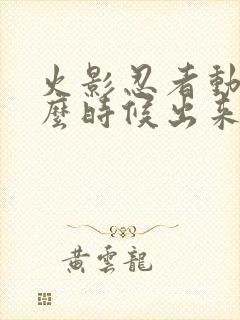 火影忍者動
麼時候出來
黃雲龍